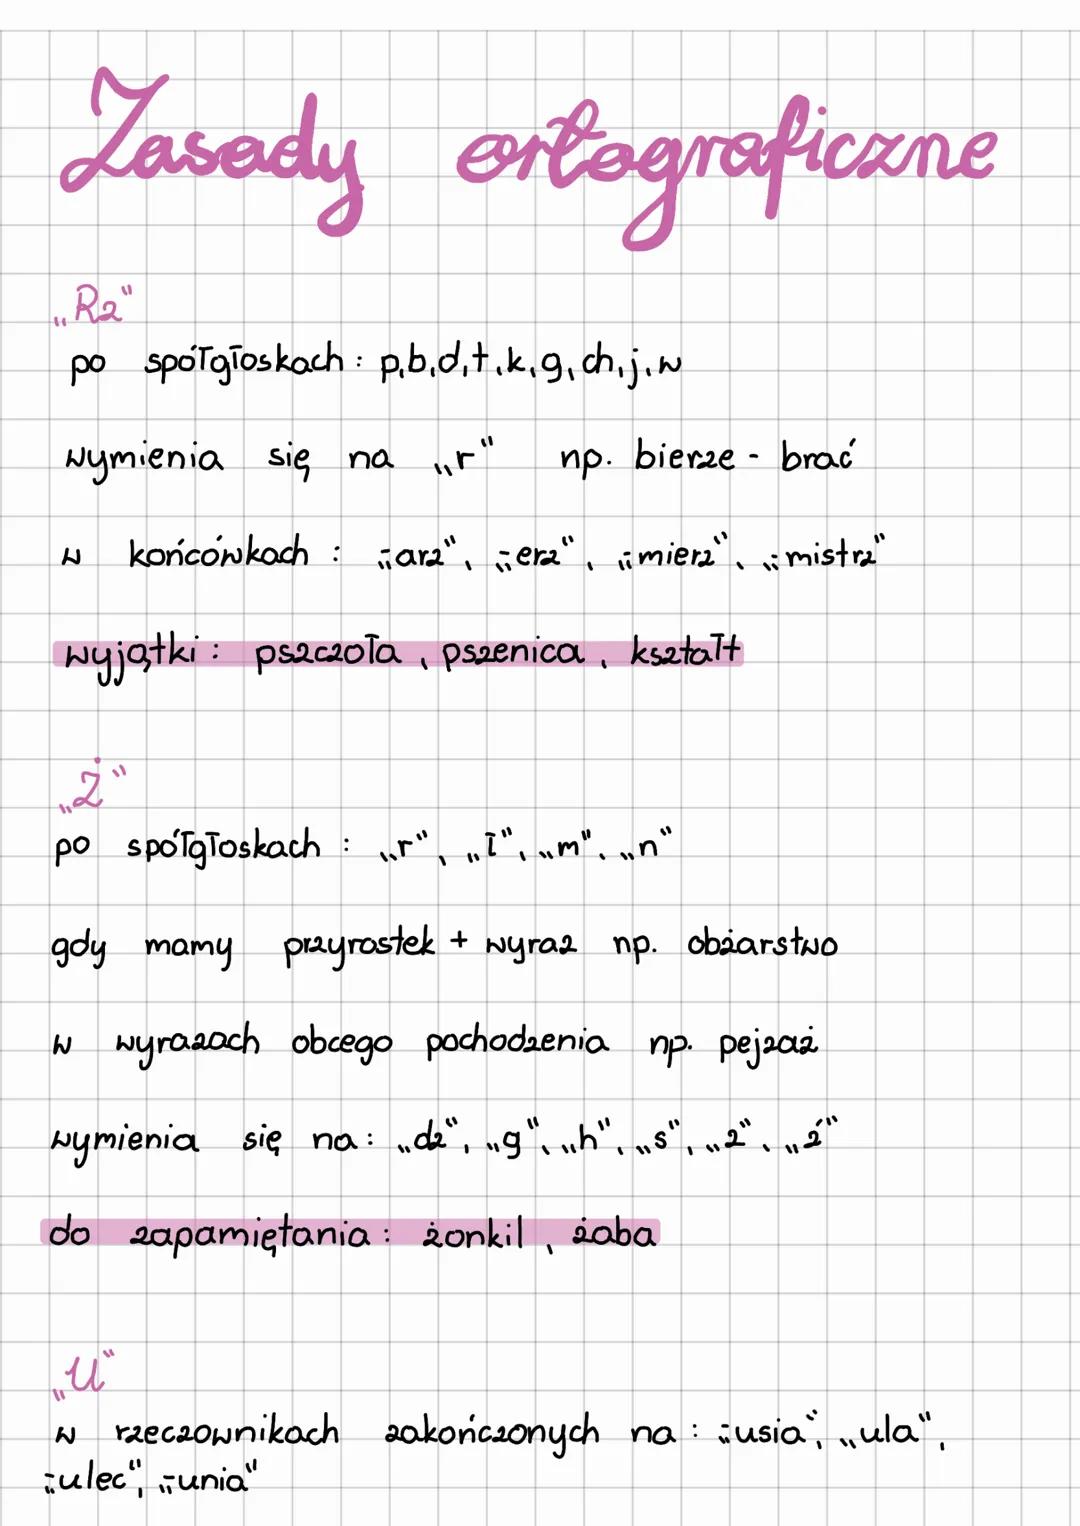 Zasady ortograficzne
„Rz"
po spółgłoskach: p,b,d,t,k,g,ch,j,w
wymienia się na „r" np. bierze - brać
w końcówkach: „-arz", „-erz", „-mierz", „-mistrz"
wyjątki: pszczoła, pszenica, kształt
„Ż"
po spółgłoskach: „r", „l", „m", „n"
gdy mamy przyrostek + wyraz np. obżarstwo
w wyrazach obcego pochodzenia np. pejzaż
wymienia się na: „dz", „g", „h", „s", „z", „ź"
do zapamiętania: żonkil, żaba
„U"
w rzeczownikach zakończonych na: „-usia", „ula",
„-ulec", „-unia"